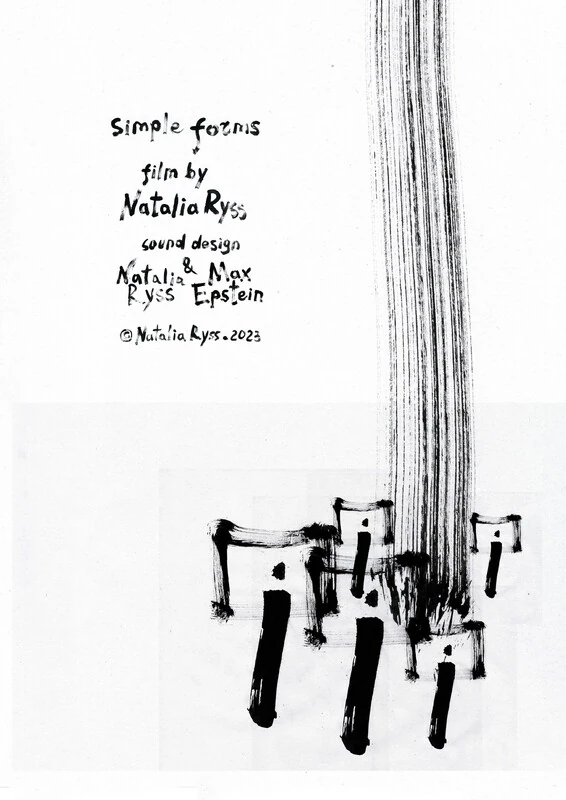 simple forms
film by
Natalia Ryss
sound design
Natalia & Max
Ryss Epstein
© Natalia Ryss. 2023